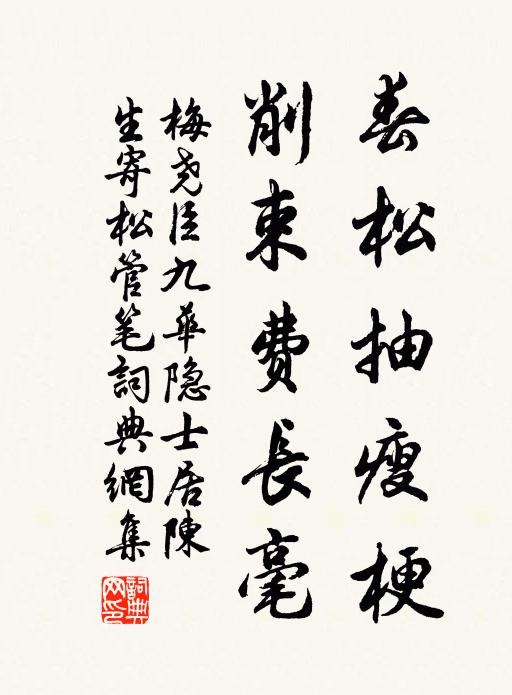 春松抽瘦梗
削束費長毫
梅尧臣九華隐士居陳
生寄松管笔詞典網集
詞典網印